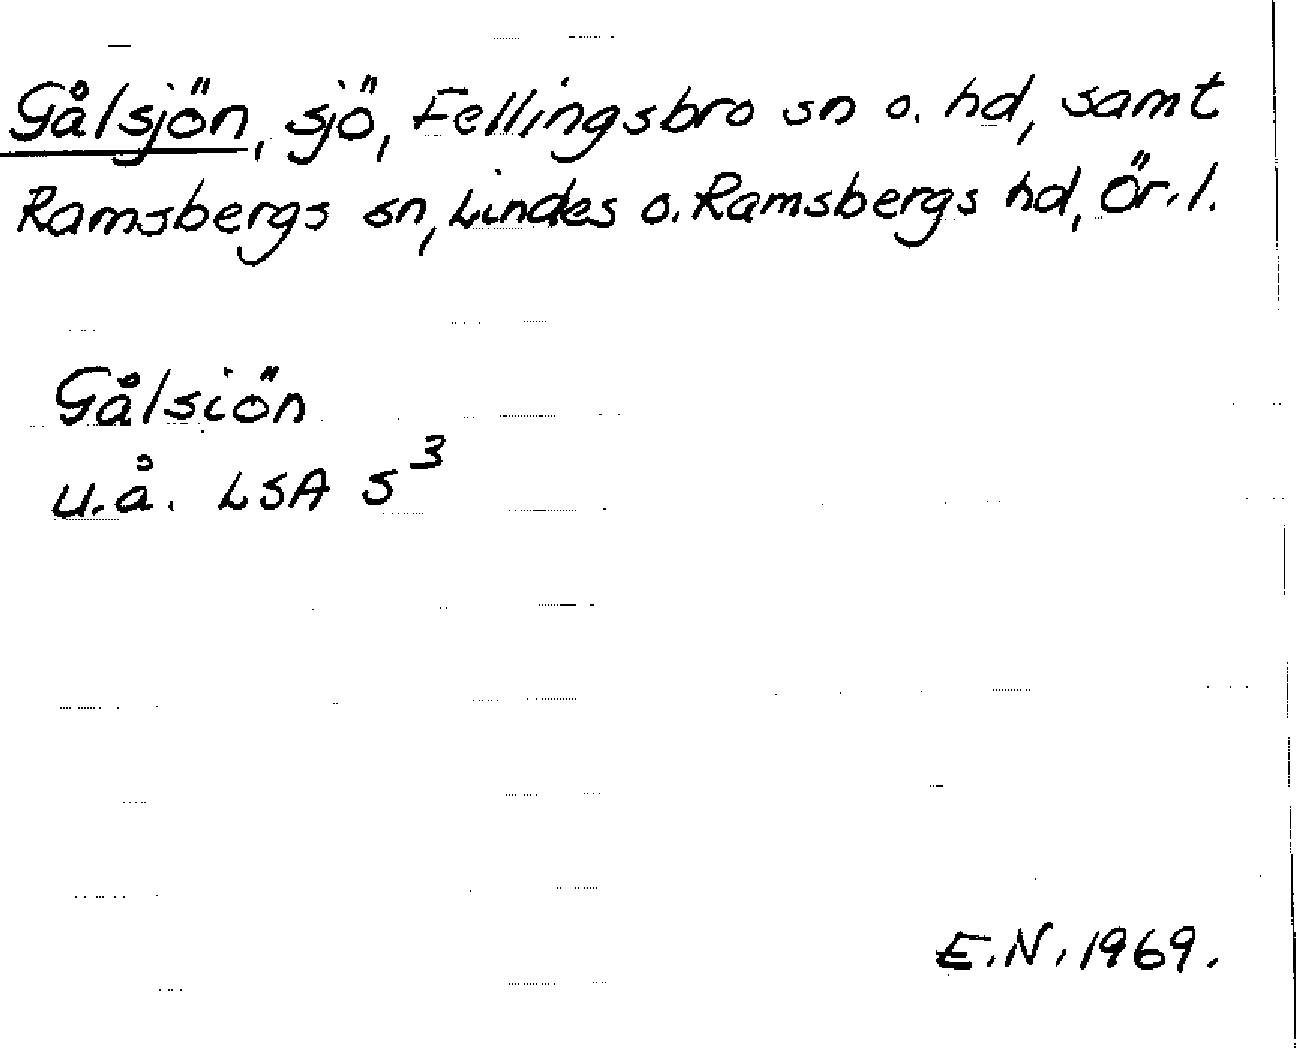 Gålsjön, sjö, Fellingsbro sn o. hd, samt
Ramsbergs sn, Lindes o. Ramsbergs hd, Ör. l.
Gålsiön
u.å. LSA S³
E.N. 1969.